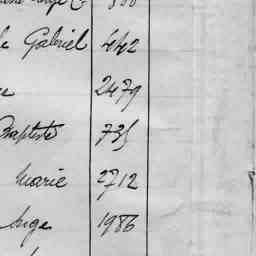 Gabriel 442
2479
Baptiste 735
Marie 2712
Ange 1986